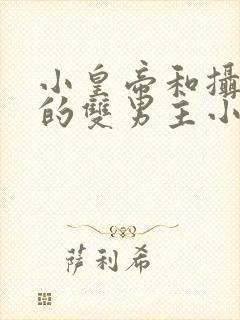 小皇帝和攝
的雙男主小
萨利希